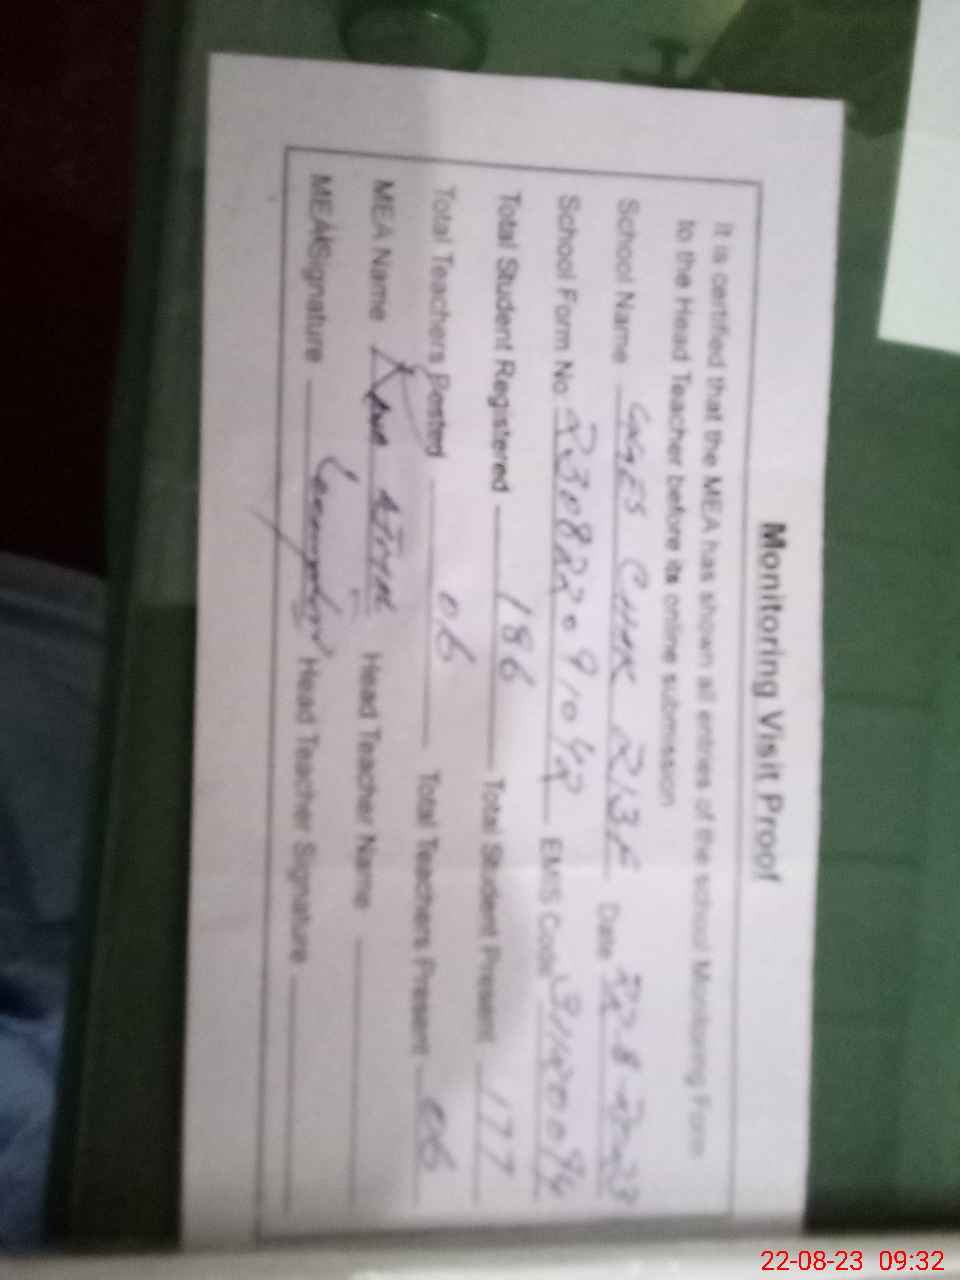 Monitoring Visit Proof
It is certified that the MEA has shown all entries of the school Monitoring Form
to the Head Teacher before its online submission
School Name GGES CHAK 213F Date 22-8-2023
School Form No 230822091042 EMIS Code
Total Student Registered 186 Total Student Present 177
Total Teachers Posted 06 Total Teachers Present 06
MEA Name Head Teacher Name
MEA Signature Head Teacher Signature
22-08-23 09:32